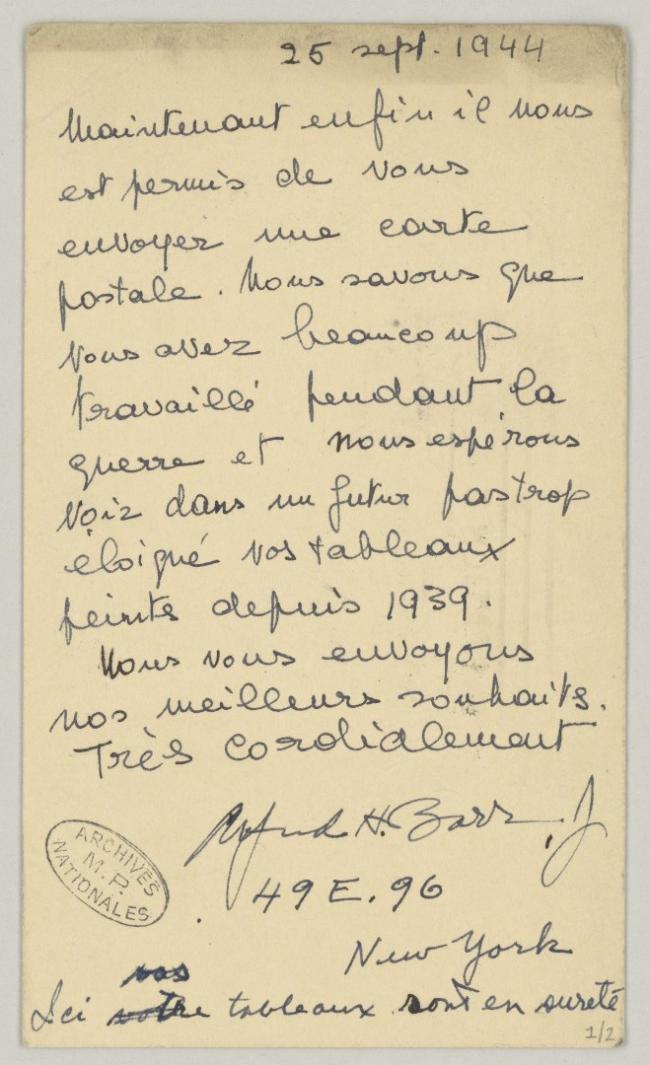 25 sept. 1944
Maintenant enfin il nous
est permis de vous
envoyer une carte
postale. Nous savons que
vous avez beaucoup
travaillé pendant la
guerre et nous espérons
voir dans un futur pas trop
éloigné vos tableaux
peints depuis 1939.
Nous vous envoyons
nos meilleurs souhaits.
Très cordialement
Alfred H. Barr, J
ARCHIVES
M. P.
NATIONALES
49 E. 96
New York
vos
Ici votre tableaux sont en sureté
1/2